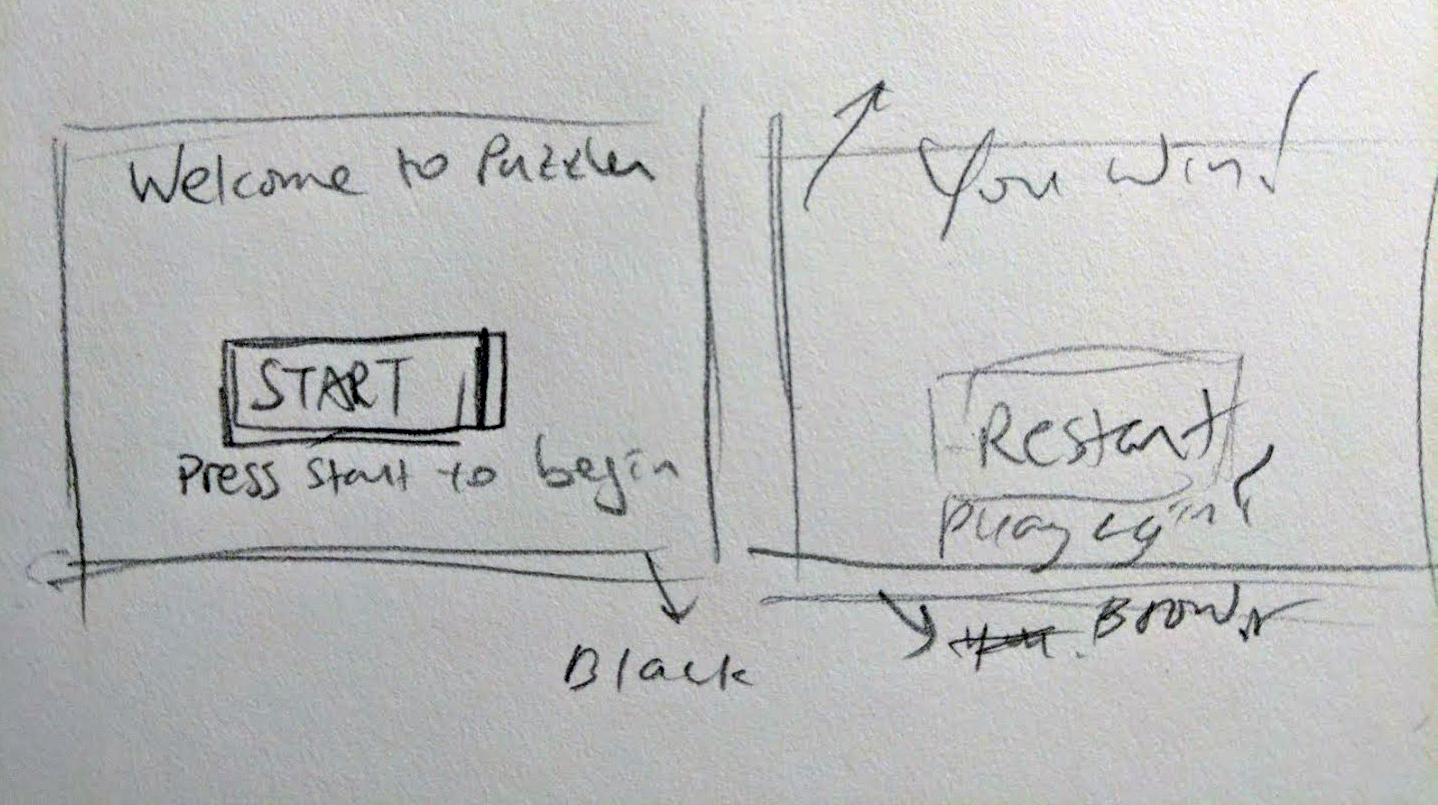 Welcome to Puzzler
START
Press Start to begin
Black
You Win!
Restart
Play again?
Brown